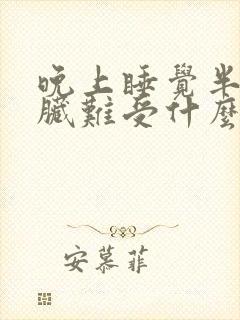 晚上睡覺半
臟難受什麼
安慕菲